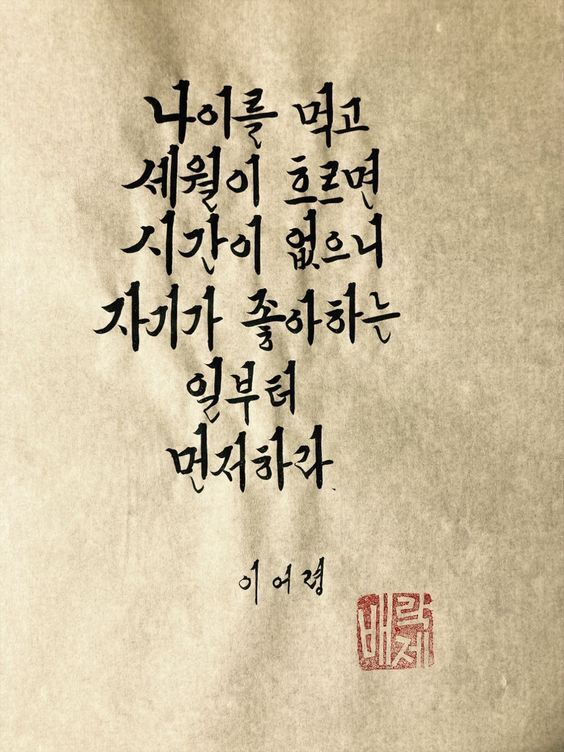 나이를 먹고
세월이 흐르면
시간이 없으니
자기가 좋아하는
일부터
먼저하라.
이어령
배락제